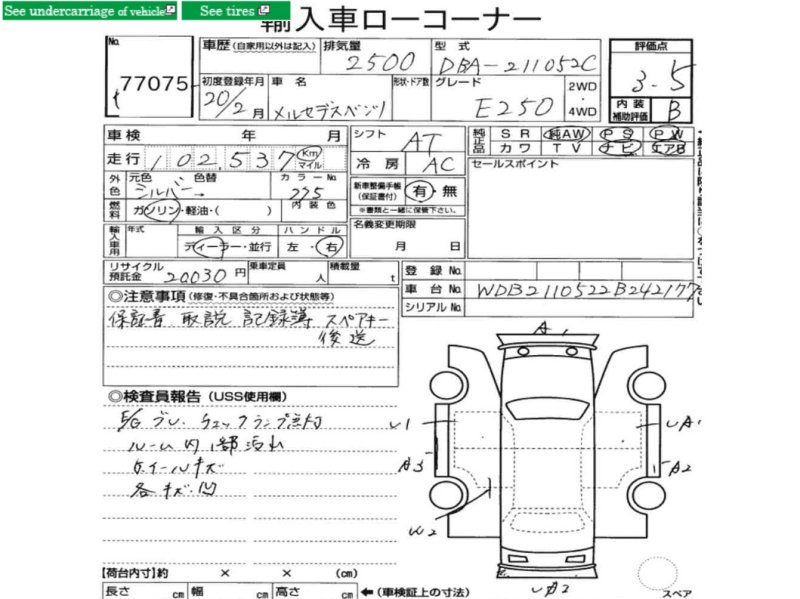 See undercarriage of vehicle
See tires
輸入車ローコーナー
No.
77075
車歴(自家用以外は記入)
排気量
2500
型式
DBA-211052C
評価点
3.5
初度登録年月
20/2月
車名
メルセデスベンツ
形状・ドア数
グレード
E250
2WD
・
4WD
内装
補助評価
B
車検 年 月
シフト
AT
純正品
SR 純AW PS PW
カワ TV ナビ エアB
走行 102,537 Km
マイル
冷房
AC
セールスポイント
外色
元色 色替
シルバー→
カラーNo.
775
新車整備手帳
(保証書付)
有・無
※書類と一緒に保管下さい。
燃料
ガソリン・軽油・( )
内装色
名義変更期限
月 日
輸入車用
年式
輸入区分
ディーラー・並行
ハンドル
左・右
リサイクル
預託金
20030円
乗車定員
人
積載量
t
登録No.
車台No.
WDB2110522B242177
シリアルNo.
◎注意事項(修復・不具合箇所および状態等)
保証書 取説 記録簿 スペアキー
後送
A1
◎検査員報告(USS使用欄)
E/Gブレ、チェックランプ点灯
ルーム内1部汚れ
ホイールキズ
各キズ凹
U1
UA1
A3
A2
W2
UA2
【荷台内寸】約 × × (cm)
長さ cm 幅 cm 高さ cm ←(車検証上の寸法)
スペア